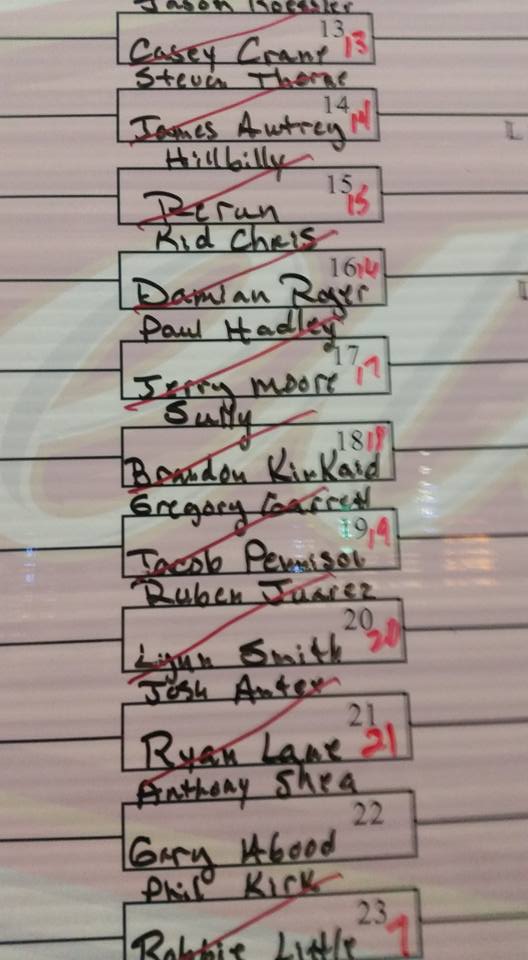 Jason Roessler
13 13
Casey Crane
Steven Thorne
14 14
James Awtrey
Hillbilly
15 15
Rerun
Kid Chris
16 16
Damian Roger
Paul Hadley
17 17
Jerry Moore
Sully
18 18
Brandon KinKaid
Gregory Garrett
19 19
Jacob
Ruben Juarez
20 20
Lynn Smith
Josh
21 21
Ryan Lane
Anthony Shea
22
Gary Abood
Phil Kirk
23
Robbie Little